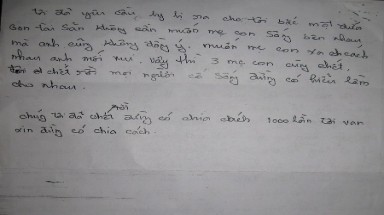 Vì đã yêu cầu ly dị xin cho tôi bắt một đứa
con tài sản không cần muốn mẹ con sống bên nhau
mà anh cũng không đồng ý. muốn mẹ con xa cách
nhau anh mới vui. vậy thì 3 mẹ con cùng chết.
chết rồi mọi người có sống đừng có hiểu lầm
cho nhau.
chúng tôi đã chết rồi đừng có chia cách 1000 lần tôi van
xin đừng có chia cách.